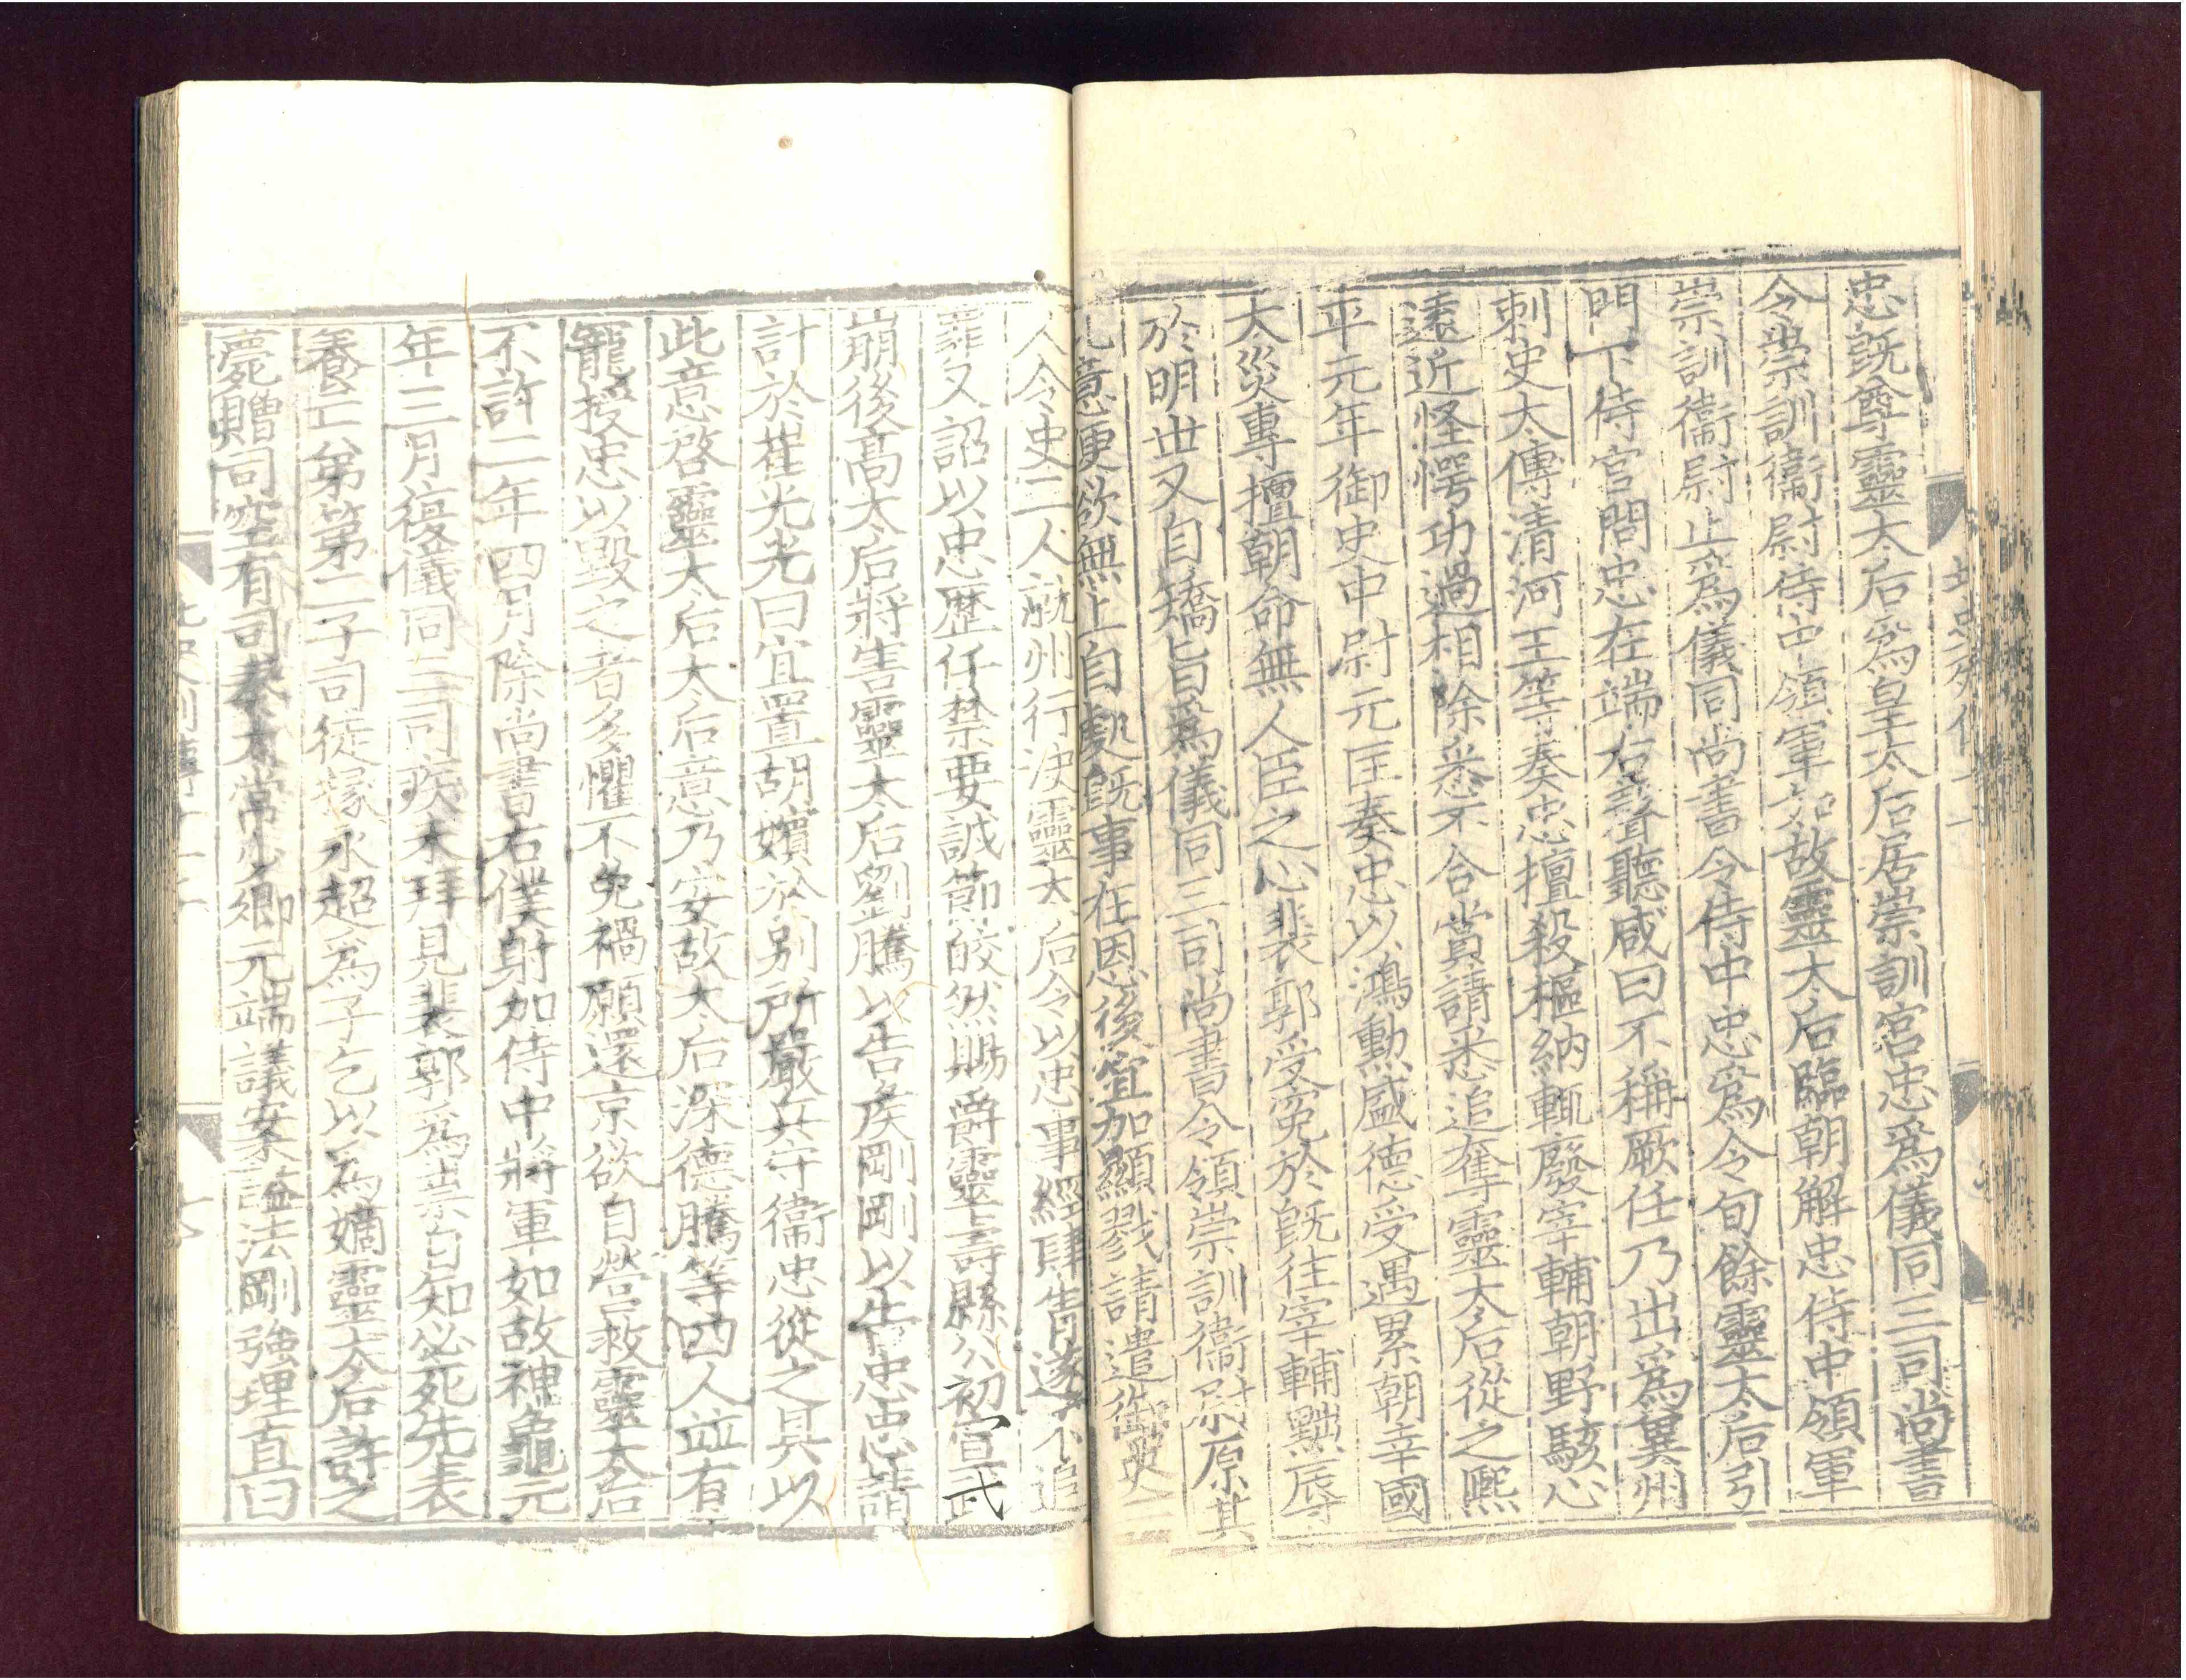 忠既尊靈太后爲皇太后居崇訓宮忠爲儀同三司尚書
令崇訓衞尉侍中領軍如故靈太后臨朝解忠侍中領軍
崇訓衞尉止爲儀同尚書令侍中忠爲令旬餘靈太后引
門下侍官問忠在端右聲聽咸曰不稱厥任乃出爲冀州
刺史太傅清河王等奏忠擅殺樞納輒廢宰輔朝野駭心
遠近怪愕功過相除悉不合賞請悉追奪靈太后從之熙
平元年御史中尉元匡奏忠以鴻勳盛德受遇累朝幸國
大災專擅朝命無人臣之心裴郭受寃於既往宰輔黜辱
於明世又自矯旨爲儀同三司尚書令領崇訓衞尉原其
此意便欲無上自處既事在恩後宜加顯戮請遣御史一
人令史二人就州行決靈太后令以忠事經肆眚遂不追
罪又詔以忠歷任禁要誠節皎然賜爵靈壽縣公初宣武
崩後高太后將害靈太后劉騰以告矦剛剛以告忠忠請
計於崔光光曰宜置胡嬪於別所嚴兵守衞忠從之具以
此意啓靈太后太后意乃安故太后深德騰等四人並有
寵授忠以毀之者多懼不免禍願還京欲自營救靈太后
不許二年四月除尚書右僕射加侍中將軍如故神龜元
年三月復儀同三司疾未拜見裴郭爲祟自知必死先表
養亡弟第二子司徒掾永超爲子乞以爲嫡靈太后許之
薨贈司空有司奏太常少卿元端議案諡法剛強理直曰